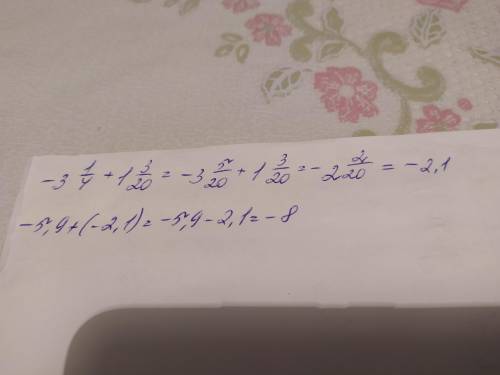 -3 1/4 + 1 3/20 = -3 5/20 + 1 3/20 = -2 2/20 = -2,1
-5,9+(-2,1)= -5,9-2,1=-8